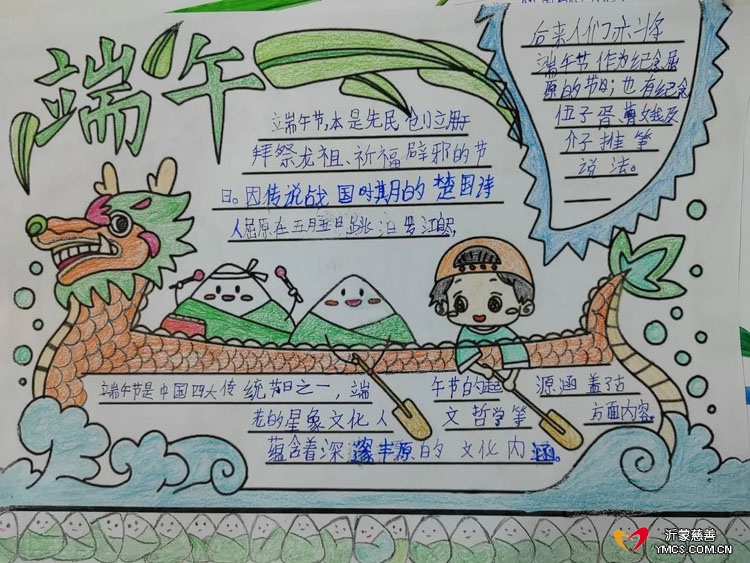 端午
端午节,本是先民创立用于
拜祭龙祖、祈福辟邪的节
日。因传说战国时期的楚国诗
人屈原在五月五日跳汨罗江
后来人们亦将
端午节作为纪念屈
原的节日;也有纪念
伍子胥、曹娥及
介子推等
说法。
端午节是中国四大传统节日之一,端午节的起源涵盖了古
老的星象文化人文哲学等方面内容
蕴含着深邃丰厚的文化内涵。
沂蒙慈善
YMCS.COM.CN